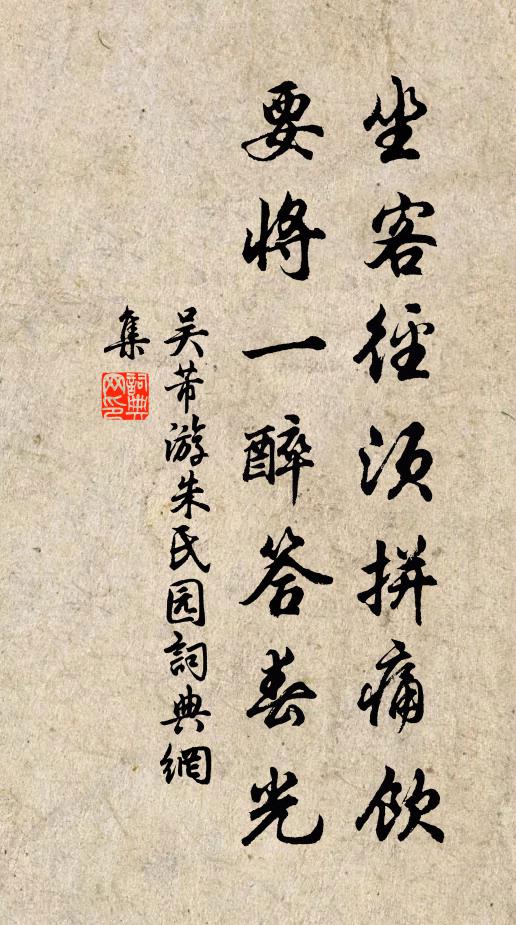 坐客径须拼痛饮
要将一醉答春光
吴芾游朱氏园詞典網
集
詞典
网印